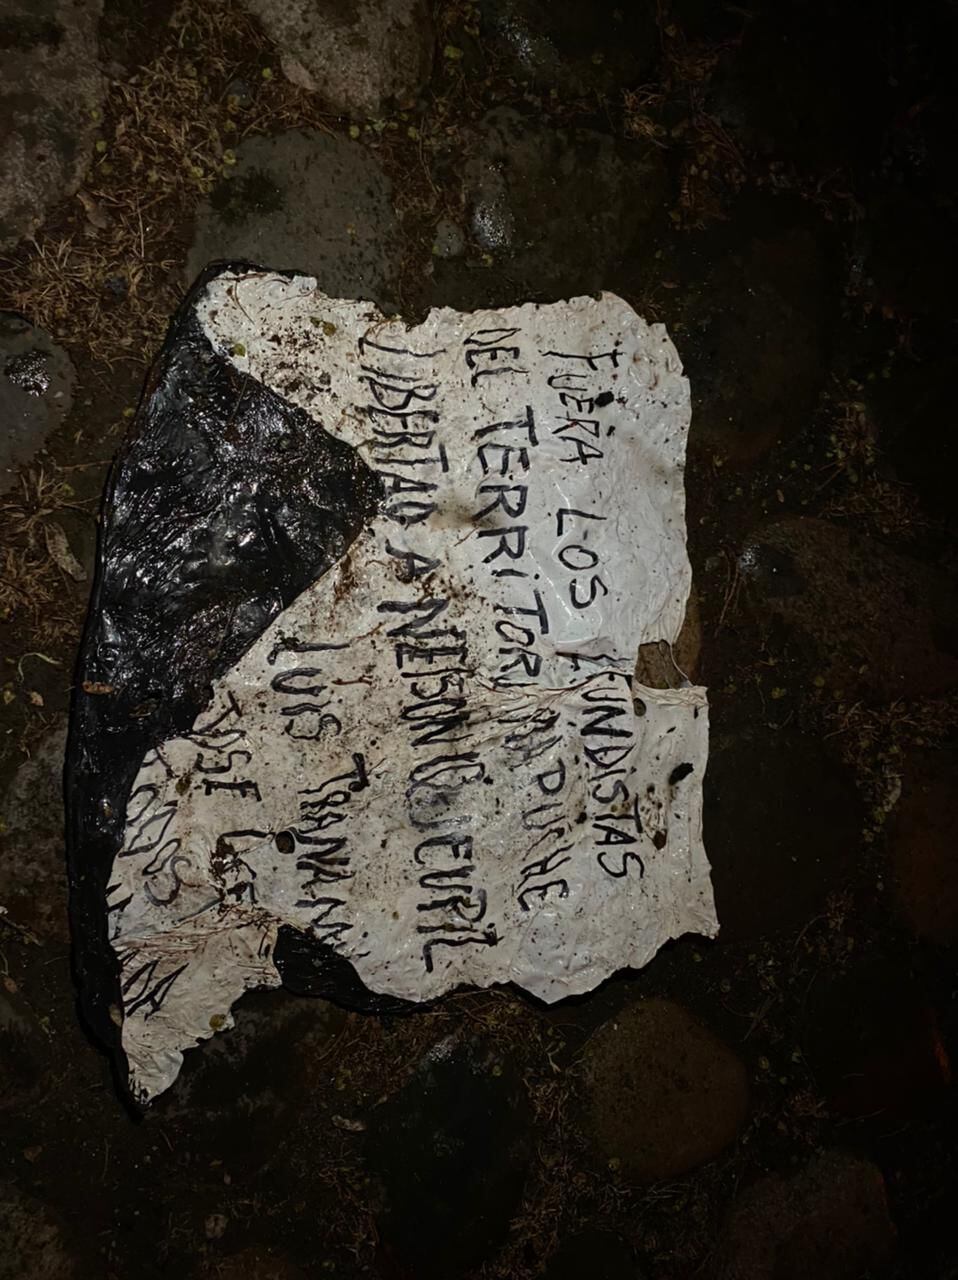 FUERA LOS FUNDISTAS
DEL TERRITORI MAPUCHE
LIBERTAD A NELSON QUEUPIL
LUIS TRANAM
JOSE LE
TODOS